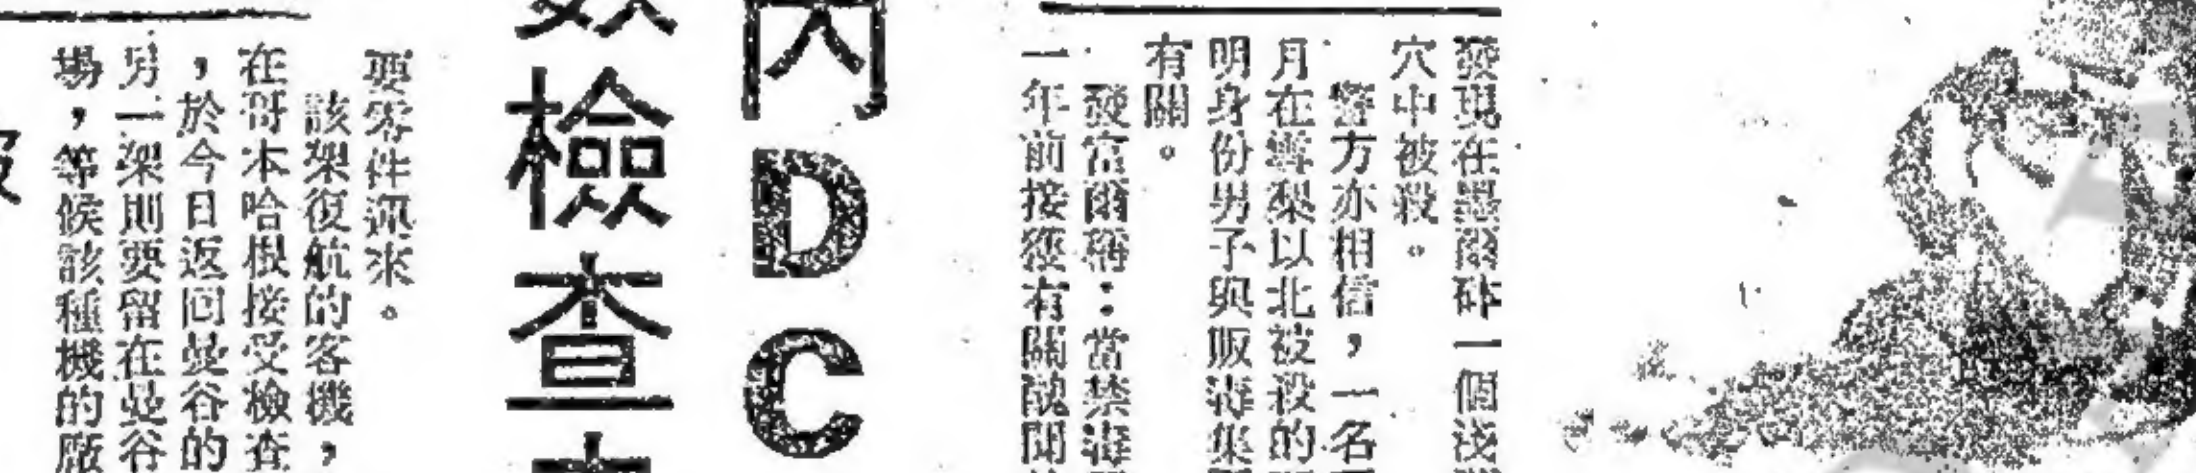 發現在墨爾砵一個淺
穴中被殺。
警方亦相信，一名
月在雪梨以北被殺的
明身份男子與販毒集
有關。
發言爾稱：當禁毒
一年前接獲有關醜聞
內DC
檢查
要零件運來。
該架復航的客機，
在哥本哈根接受檢查
，於今日返回曼谷的
另一架則要留在曼谷
場，等候該種機的廠